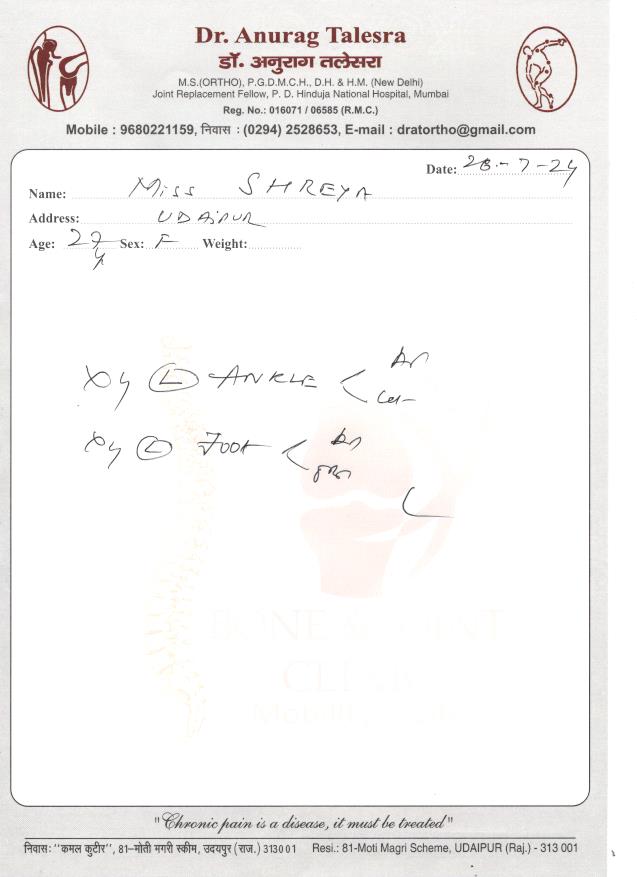 Dr. Anurag Talesra
डॉ. अनुराग तलेसरा
M.S.(ORTHO), P.G.D.M.C.H., D.H. & H.M. (New Delhi)
Joint Replacement Fellow, P. D. Hinduja National Hospital, Mumbai
Reg. No.: 016071 / 06585 (R.M.C.)
Mobile : 9680221159, निवास : (0294) 2528653, E-mail : dratortho@gmail.com
Date: 28-7-24
Name: Miss SHREYA
Address: UDAIPUR
Age: 27 y Sex: F Weight:
Xy L ANKLE < AP
Lat
Xy L Foot < AP
BONE & JOINT
CLINIC
"Chronic pain is a disease, it must be treated"
निवास: "कमल कुटीर", 81-मोती मगरी स्कीम, उदयपुर (राज.) 313001 Resi.: 81-Moti Magri Scheme, UDAIPUR (Raj.) - 313 001